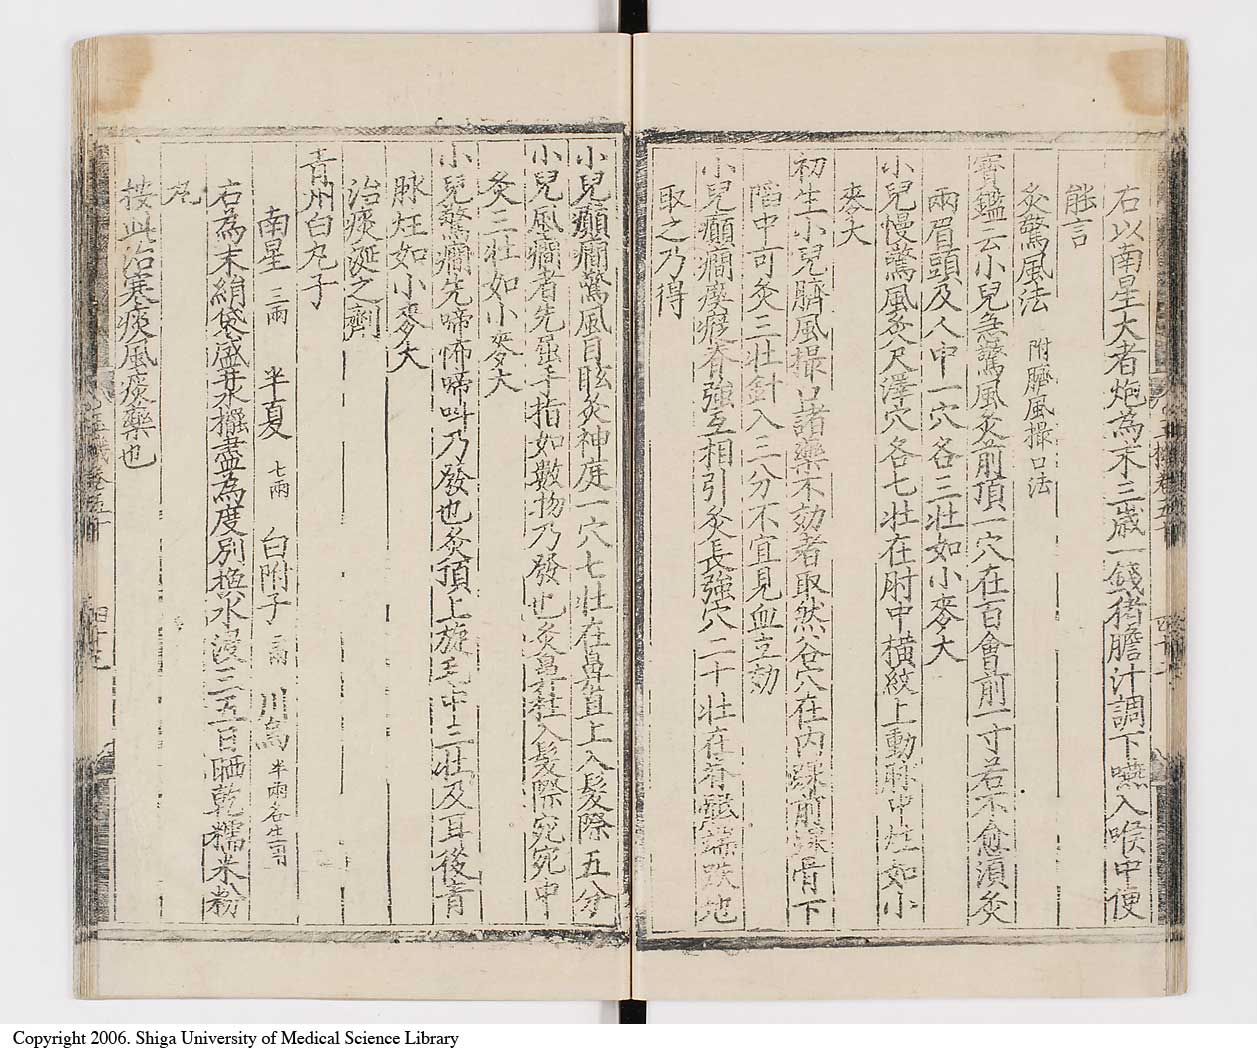 右以南星大者炮為末三歲一錢猪膽汁調下嚥入喉中便
能言
灸驚風法 附臍風撮口法
寶鑑云小兒急驚風灸前頂一穴在百會前一寸若不愈須灸
兩眉頭及人中一穴各三壯如小麥大
小兒慢驚風灸尺澤穴各七壯在肘中橫紋上動脉中炷如小
麥大
初生小兒臍風撮口諸藥不効者取然谷穴在內踝前起骨下
陷中可灸三壯針入三分不宜見血立効
小兒癲癇瘈瘲脊強互相引灸長強穴三十壯在脊骶端趺地
取之乃得
小兒癲癇驚風目眩灸神庭一穴七壯在鼻直上入髮際五分
小兒風癇者先屈手指如數物乃發也灸鼻柱入髮際宛宛中
灸三壯如小麥大
小兒驚癇先啼怖啼叫乃發也灸頂上旋毛中三壯及耳後青
脉炷如小麥大
治痰涎之劑
青州白丸子
南星 三兩 半夏 七兩 白附子 二兩 川烏 半兩各生用
右為末絹袋盛井水擺盡為度別換水浸三五日晒乾糯米粉
丸
按此治寒痰風痰藥也
Copyright 2006. Shiga University of Medical Science Library